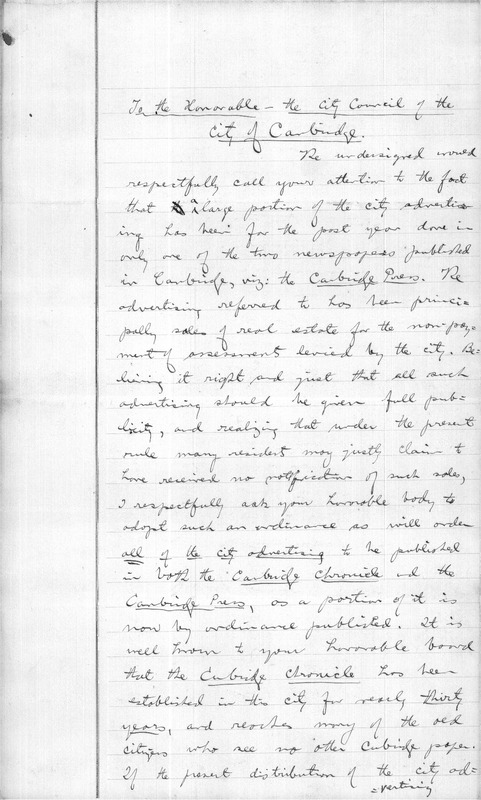 To the Honorable – the City Council of the
City of Cambridge.
The undersigned would
respectfully call your attention to the fact
that a large portion of the city advertis-
ing has been for the past year done in
only one of the two newspapers published
in Cambridge, viz: the Cambridge Press. The
advertising referred to has been princi-
pally sales of real estate for the non-pay-
ment of assessments levied by the city. Be-
lieving it right and just that all such
advertising should be given full pub-
licity, and realizing that under the present
rule many residents may justly claim to
have received no notification of such sales,
I respectfully ask your honorable body to
adopt such an ordinance as will order
all of the city advertising to be published
in both the Cambridge Chronicle and the
Cambridge Press, as a portion of it is
now by ordinance published. It is
well known to your honorable board
that the Cambridge Chronicle has been
established in this city for nearly thirty
years, and reaches many of the old
citizens who see no other Cambridge paper.
If the present distribution of the city ad-
=vertising